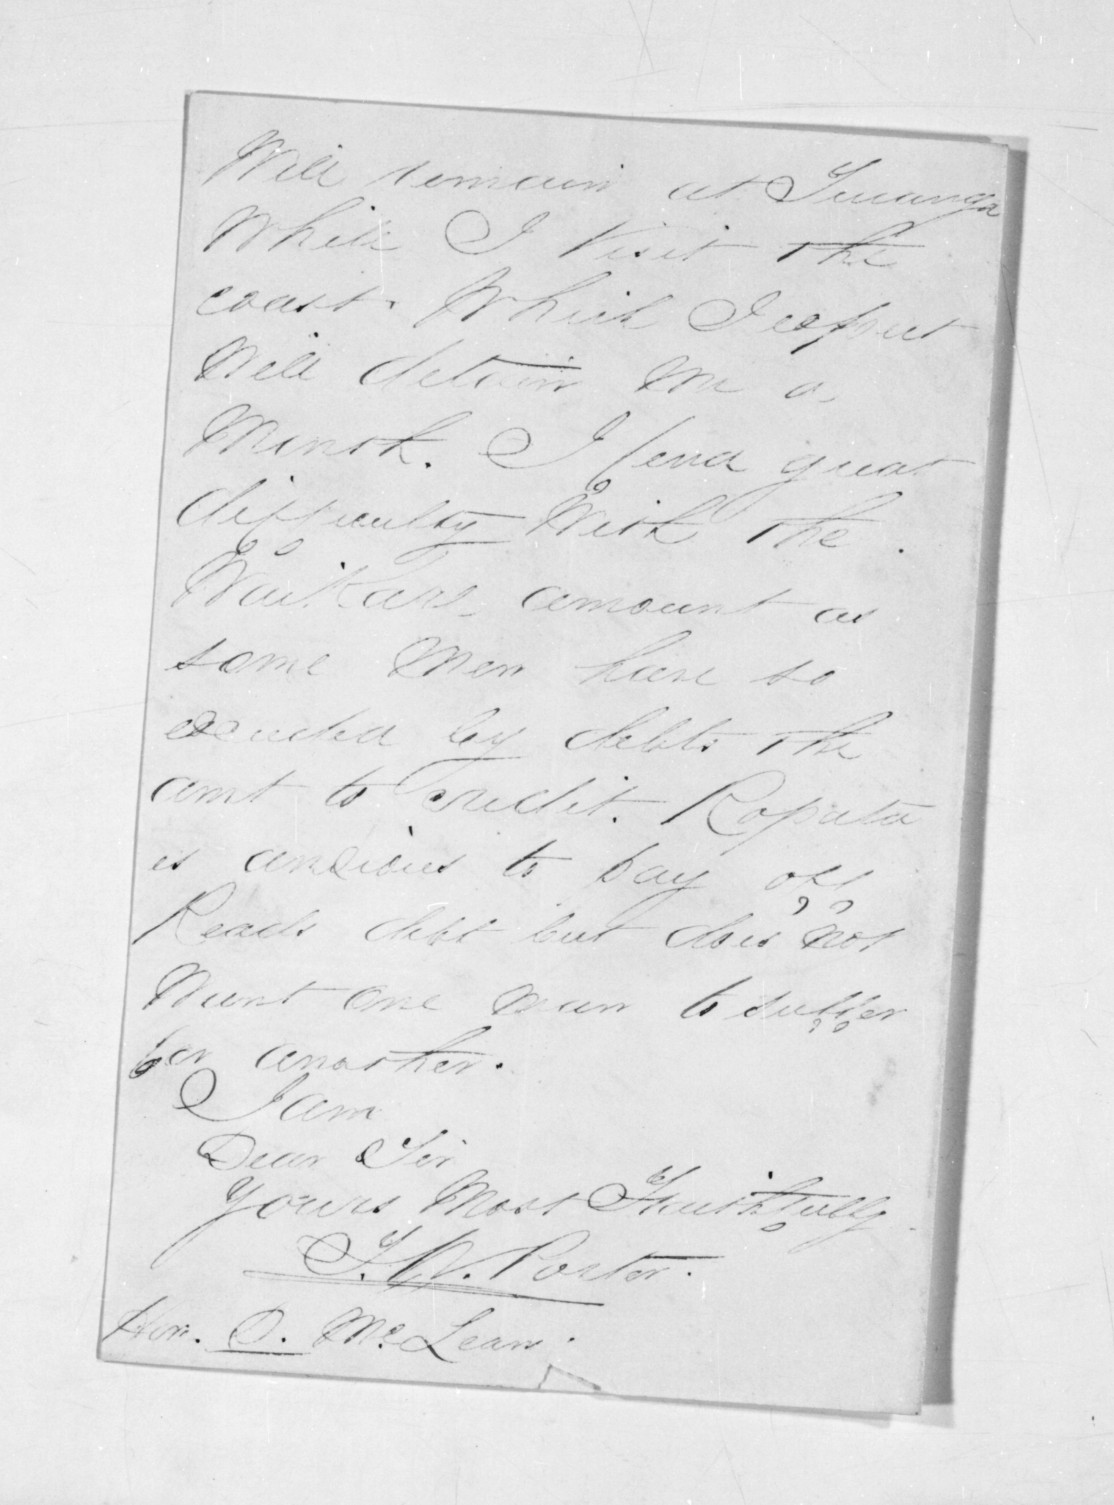 Will remain at Turanga
While I Visit the
coast. Which I expect
Will detain Me a
Month. I find great
difficulty With the
Waikare amount as
some Men have so
exceeded by debts the
amt to credit. Ropata
is anxious to pay off
Reads debt but does not
Want one man to suffer
for another.
I am
Dear Sir
Yours Most Faithfully
T.W. Porter.
Hon. D. McLean.